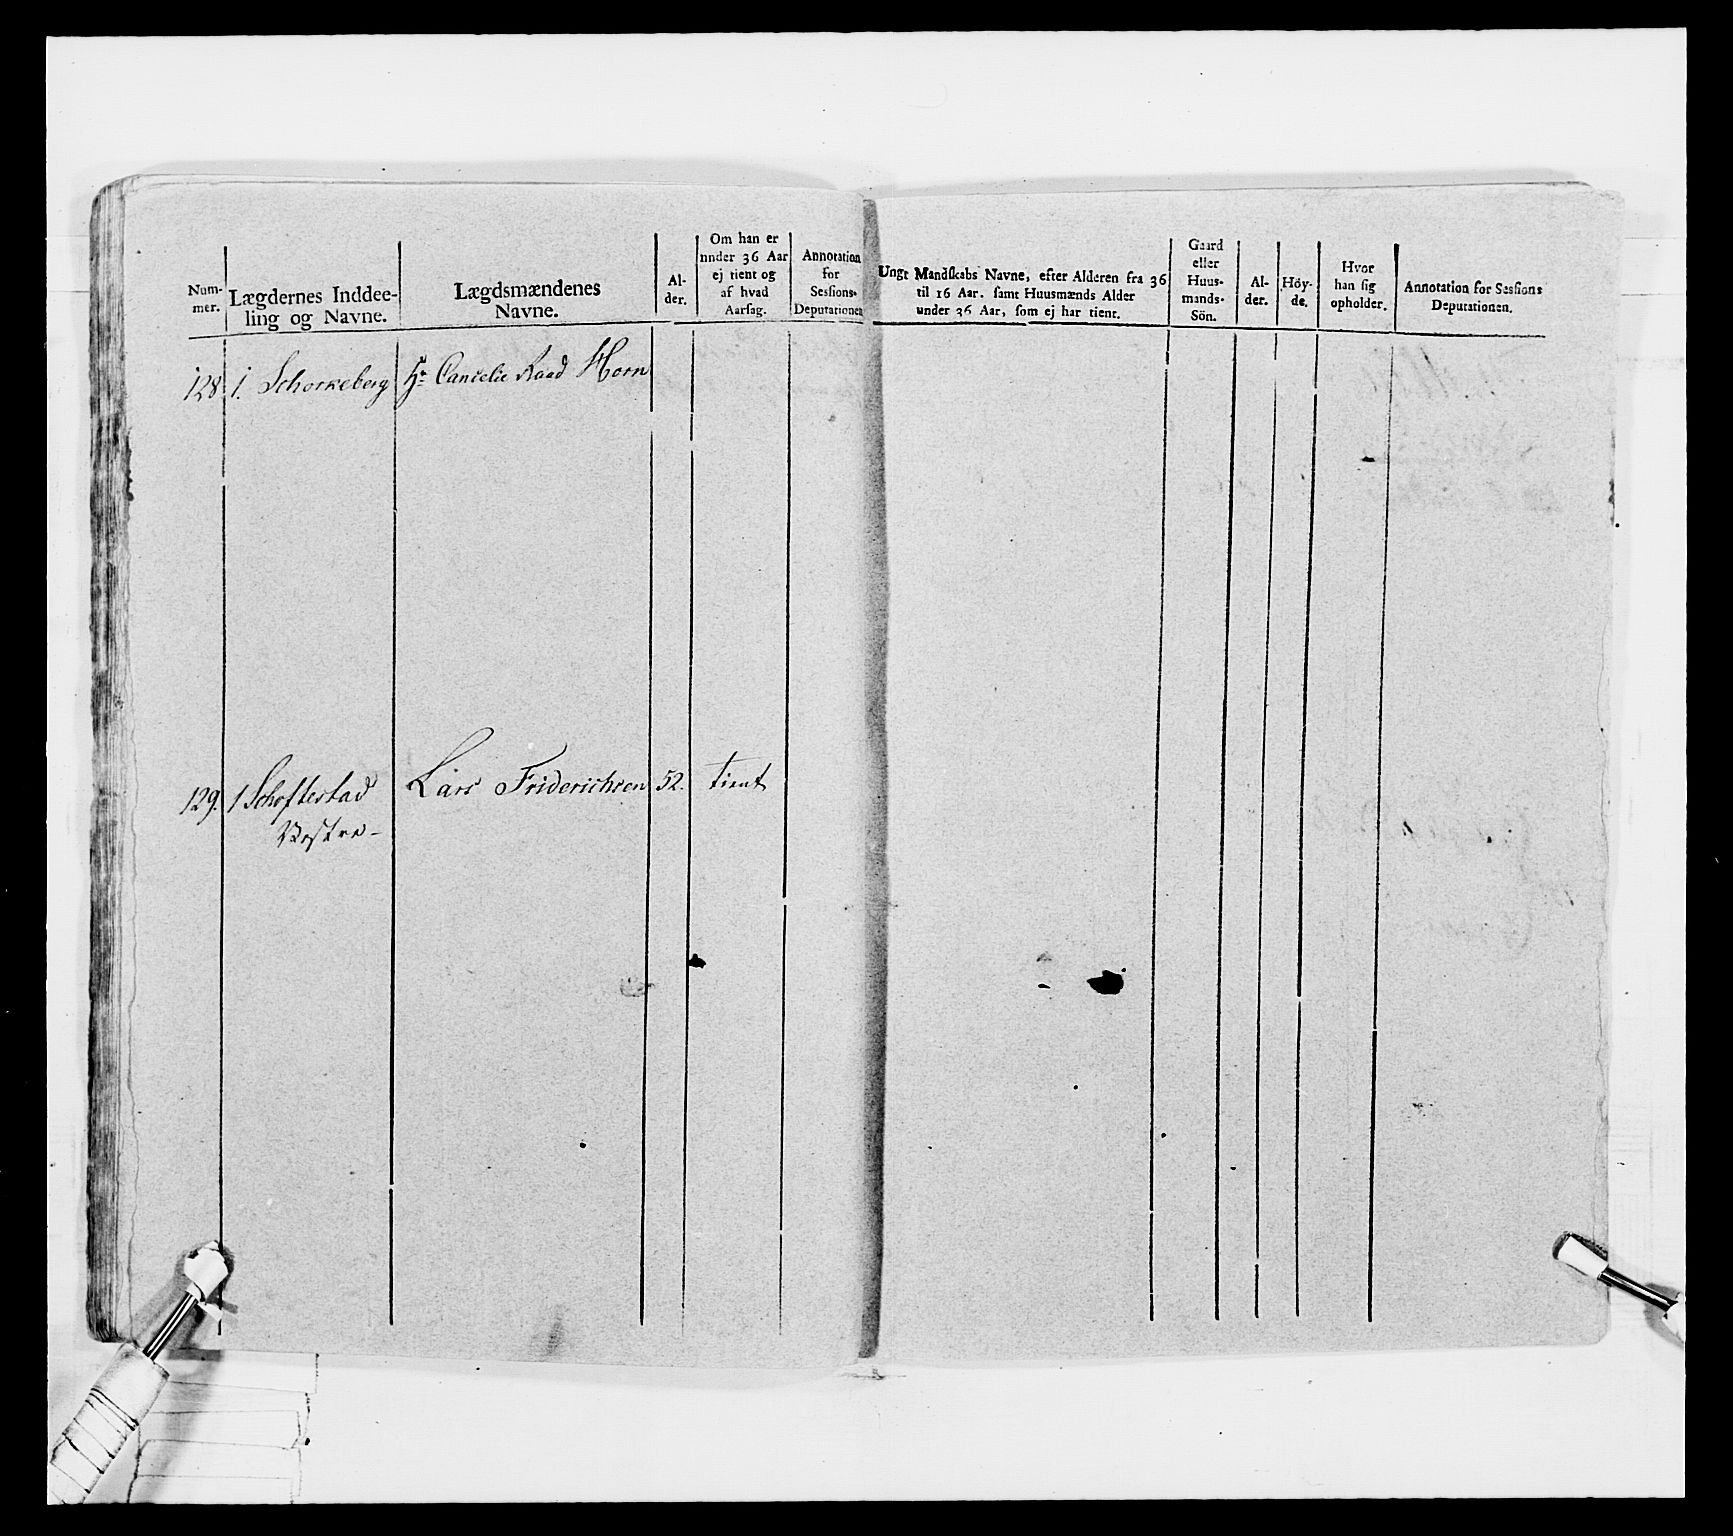 Num-
mer.
Lægdernes Inddee-
ling og Navne.
Lægdsmændenes
Navne.
Al-
der.
Om han er
under 36 Aar
ej tient og
af hvad
Aarsag.
Annotation
for
Sessions-
Deputationen
Ungt Mandskabs Navne, efter Alderen fra 36
til 16 Aar, samt Huusmænds Alder
under 36 Aar, som ej har tient.
Gaard
eller
Huus-
mands-
Sön.
Al-
der.
Höy-
de.
Hvor
han sig
opholder.
Annotation for Sessions
Deputationen.
128. 1. Schorkeberg Hr Cancelie Raad Horn
129. 1 Schoftestad Lars Friderichsen 52. tient
Vestre-